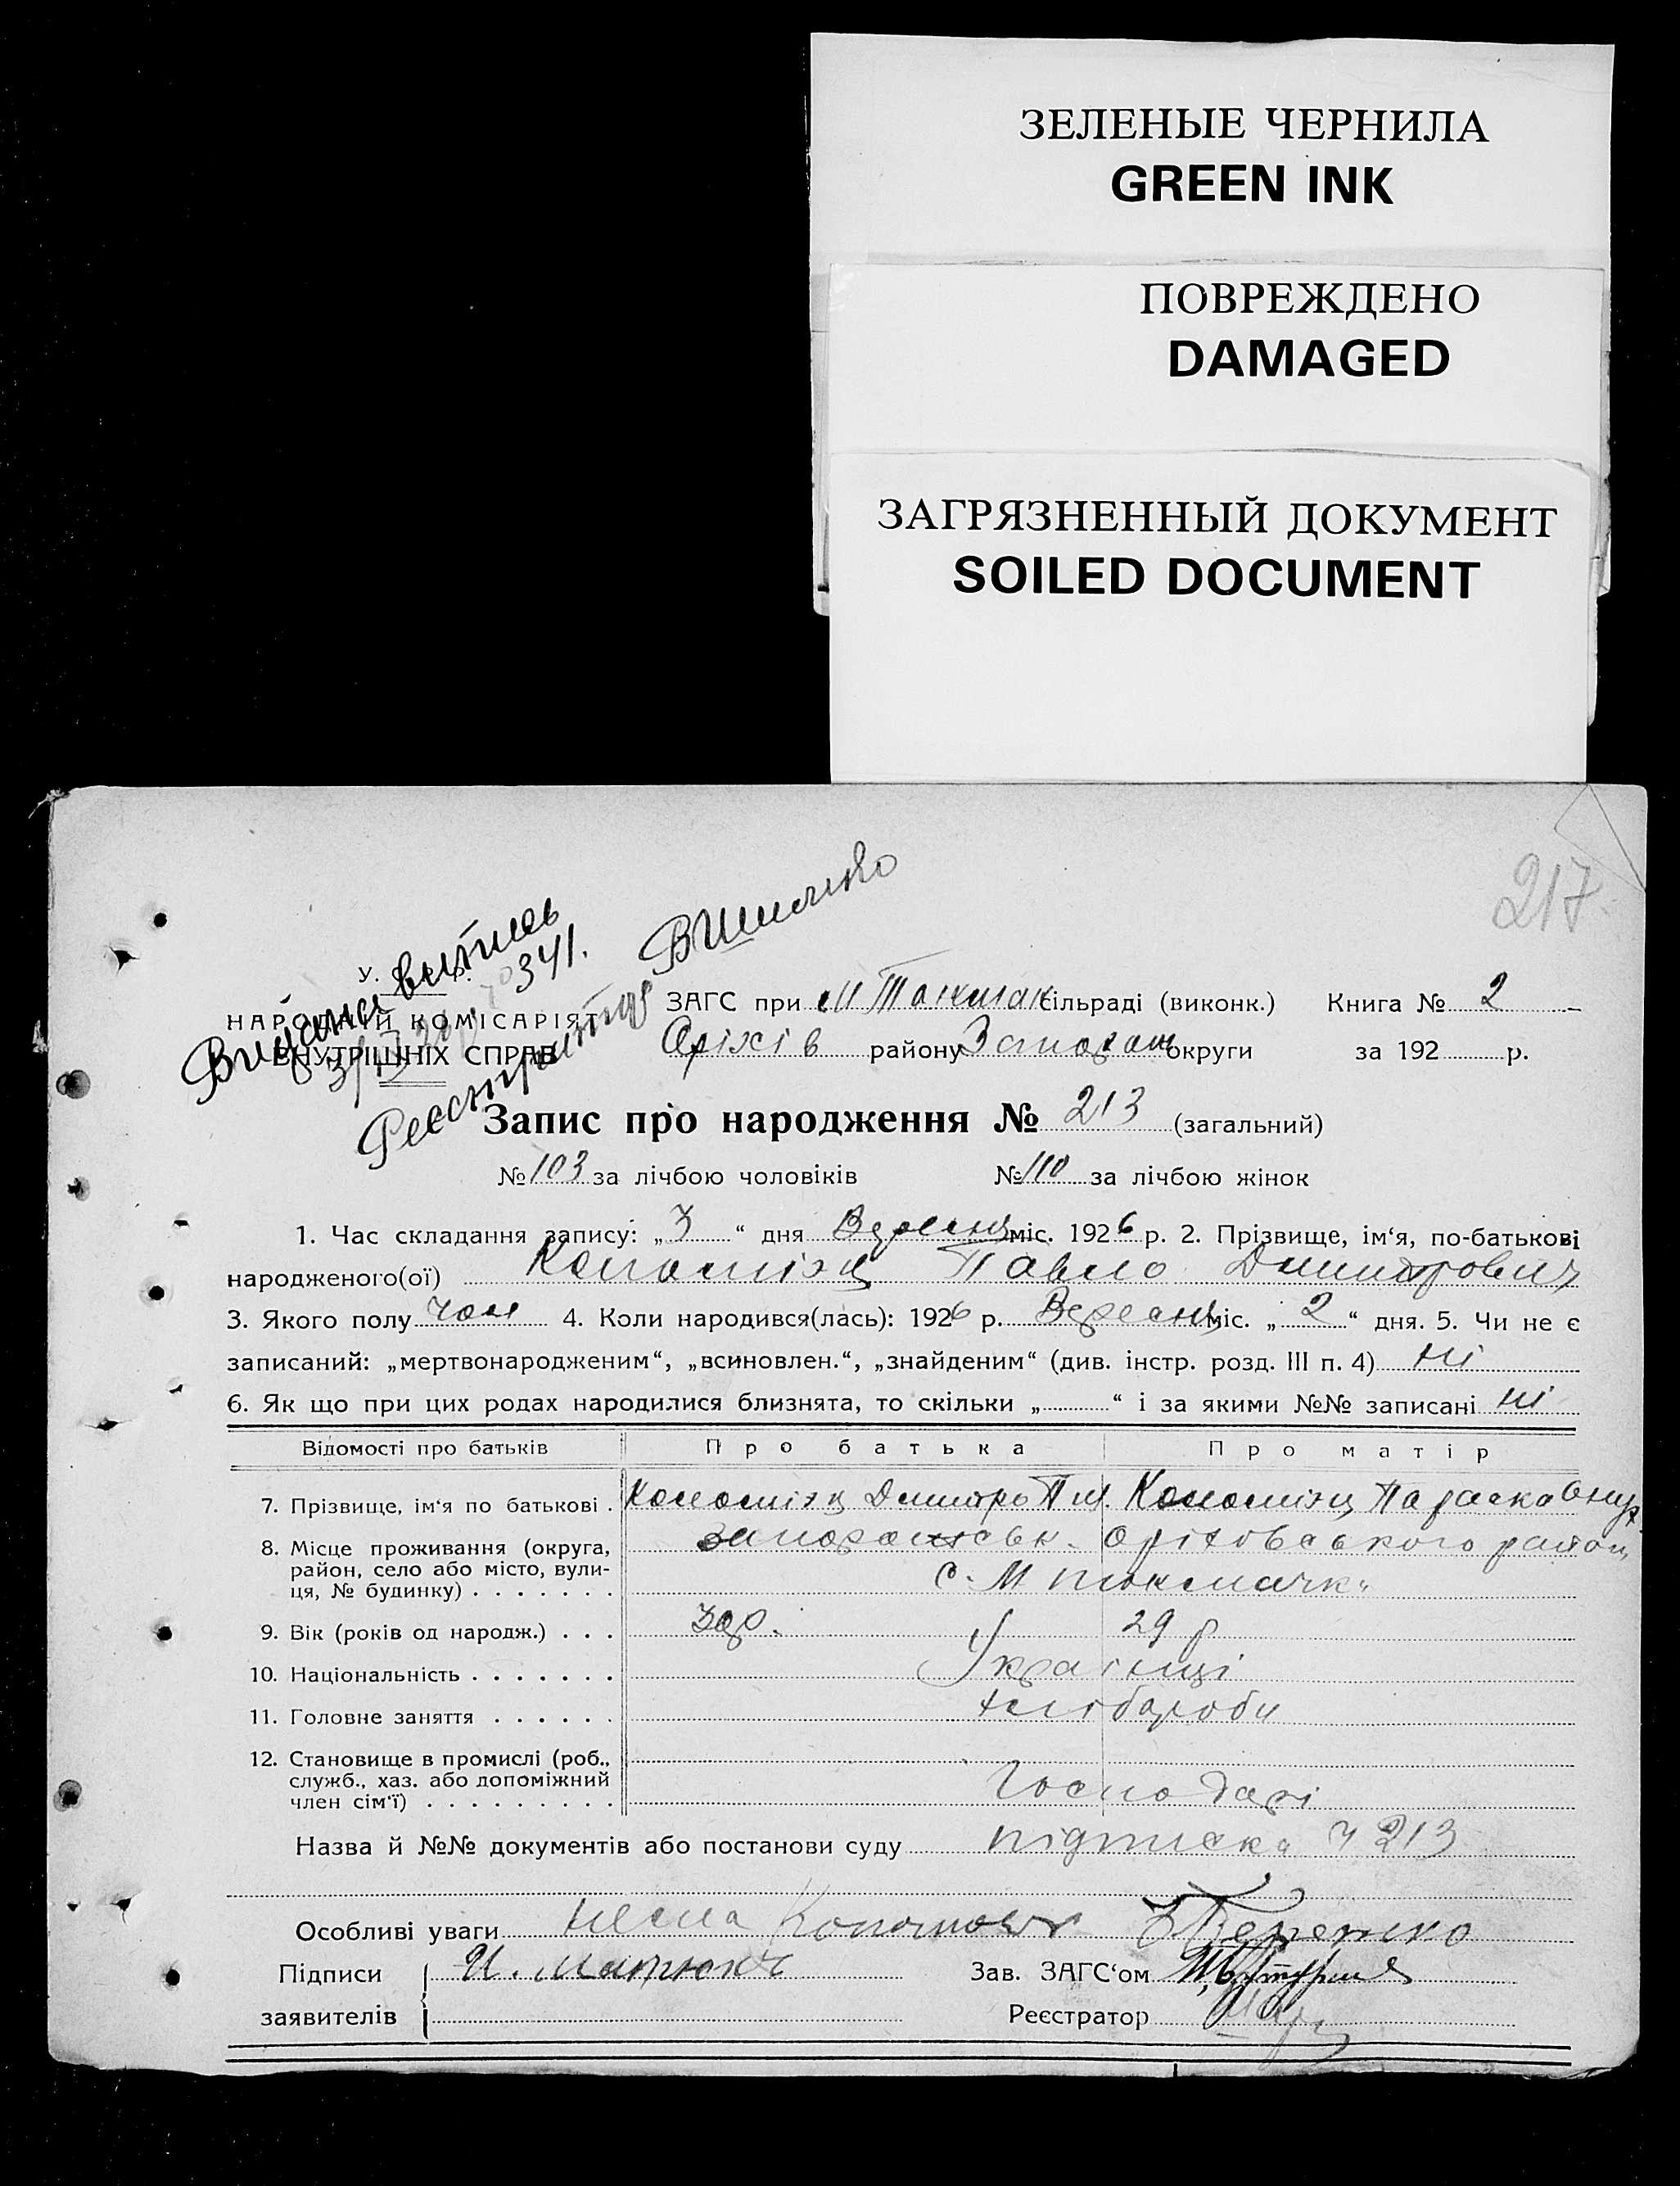 ЗЕЛЕНЫЕ ЧЕРНИЛА
GREEN INK
ПОВРЕЖДЕНО
DAMAGED
ЗАГРЯЗНЕННЫЙ ДОКУМЕНТ
SOILED DOCUMENT
217
Видана витпись
341.
У. С. Р. Р.
НАРОДНІЙ КОМІСАРІЯТ
ВНУТРІШНІХ СПРАВ
ЗАГС при М Токмак сільраді (виконк.) Книга № 2
Оріхів району Запорож округи за 192 р.
Запис про народження № 213 (загальний)
№ 103 за лічбою чоловіків № 110 за лічбою жінок
1. Час складання запису: „3“ дня Вересня міс. 1926 р. 2. Прізвище, ім‘я, по-батькові
народженого(ої) Коломієц Павло Дмитрович
3. Якого полу чол 4. Коли народився(лась): 1926 р. Вересня міс. „2“ дня. 5. Чи не є
записаний: „мертвонародженим“, „всиновлен.“, „знайденим“ (див. інстр. розд. III п. 4) ні
6. Як що при цих родах народилися близнята, то скільки „ “ і за якими №№ записані ні
Відомості про батьків Про батька Про матір
7. Прізвище, ім‘я по батькові . Коломієц Дмитро Коломієц Параска
8. Місце проживання (округа, Запорожськ. Оріховського району
район, село або місто, вули-
ця, № будинку) . . . . . . . с. М Токмачк
9. Вік (років од народж.) . . . 29 р
10. Національність . . . . . . . Українці
11. Головне заняття . . . . . . хлібороби
12. Становище в промислі (роб.,
служб., хаз. або допоміжний
член сім‘ї) . . . . . . . . . Господарі
Назва й №№ документів або постанови суду підписка 213
Особливі уваги
Підписи
Зав. ЗАГС‘ом
заявителів
Реєстратор